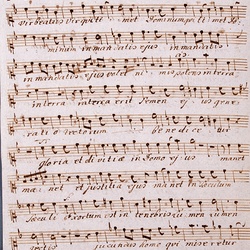 vir beatus vir qui ti met Dominum, ti met Do
minum in mandatis ejus in mandatis
in mandatis ejus volet ni mis potens in terra
in terra in terra erit semen ejus gene
rati o rectorum be ne di ce
gloria et divitiæ in domo e jus manet
ma net et justitia ejus ma net in sæculum
sæculi exortum est in tenebris lu men lumen
rectis jucundus homo qui mise retur